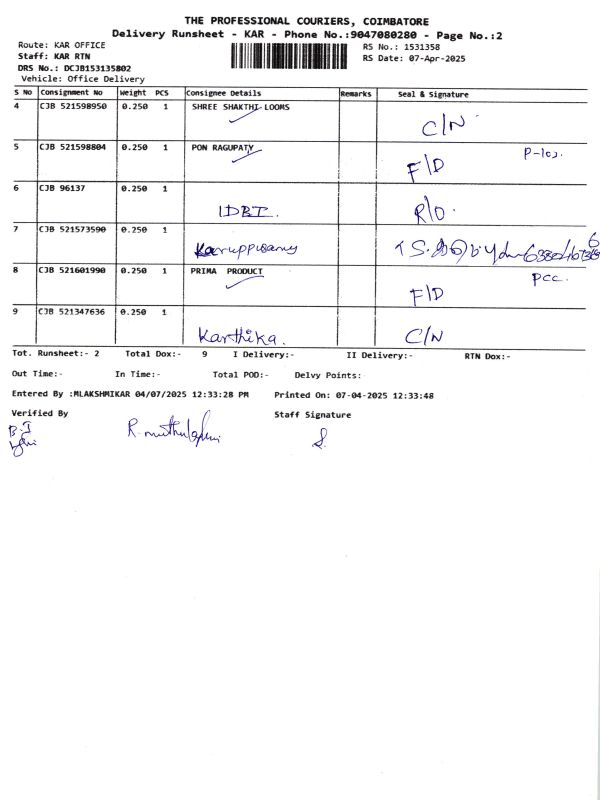 THE PROFESSIONAL COURIERS, COIMBATORE
Delivery Runsheet - KAR - Phone No.:9047080280 - Page No.:2
Route: KAR OFFICE
Staff: KAR RTN
DRS No.: DCJB153135802
Vehicle: Office Delivery
RS No.: 1531358
RS Date: 07-Apr-2025
S No Consignment No Weight PCS Consignee Details Remarks Seal & Signature
4 CJB 521598950 0.250 1 SHREE SHAKTHI LOOMS C/N
5 CJB 521598804 0.250 1 PON RAGUPATY F/D
6 CJB 96137 0.250 1 IDBI. R/O.
7 CJB 521573590 0.250 1 Karuppusamy
8 CJB 521601990 0.250 1 PRIMA PRODUCT F/D PCC.
9 CJB 521347636 0.250 1 Karthika. C/N
Tot. Runsheet:- 2 Total Dox:- 9 I Delivery:- II Delivery:- RTN Dox:-
Out Time:- In Time:- Total POD:- Delvy Points:-
Entered By :MLAKSHMIKAR 04/07/2025 12:33:28 PM Printed On: 07-04-2025 12:33:48
Verified By Staff Signature